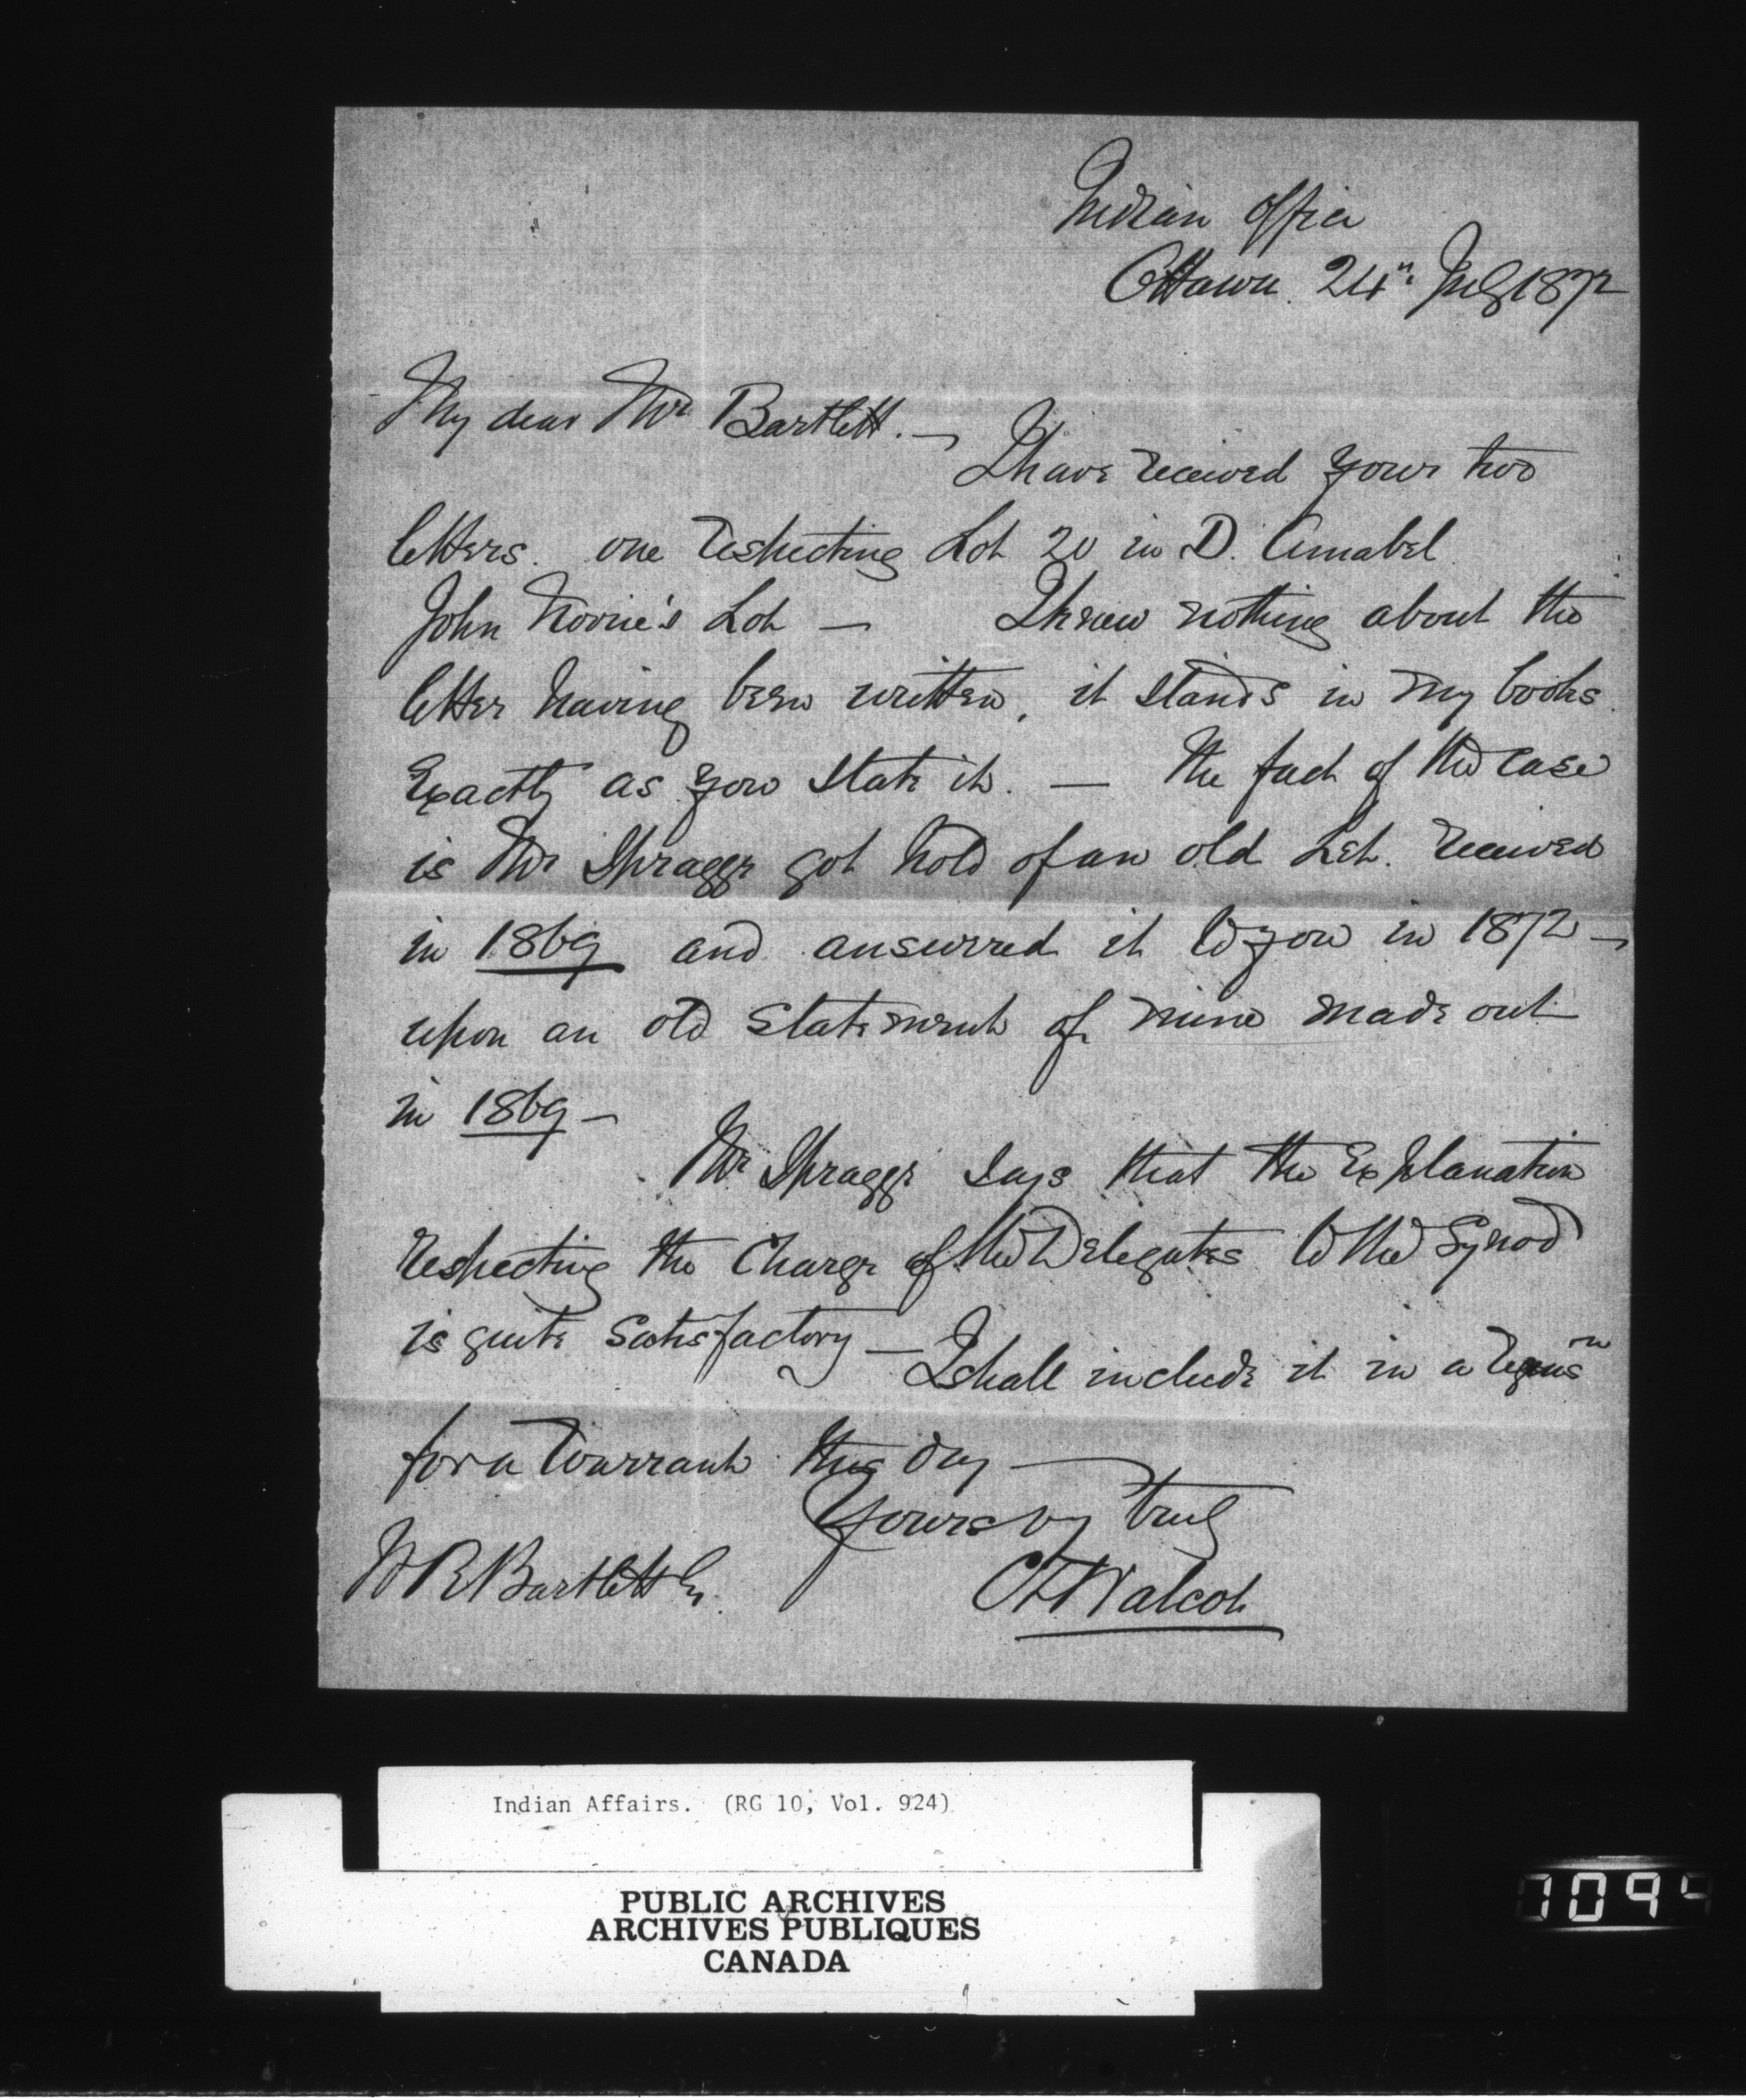 Indian Office
Ottawa 24th July 1872
My dear Mr Bartlett. —
I have received your two
letters. one respecting Lot 20 in D. Amabel
John Lot — I knew nothing about the
letter having been written, it stands in my books
Exactly as you state it. — The fact of the case
is Mr Spragge got hold of an old Let. received
in 1869 and answered it to you in 1872 —
upon an old statement of mine made out
in 1869 —
Mr Spragge says that the Explanation
respecting the Charge of the Delegates to the Synod
is quite satisfactory — I shall include it in a requisn
for a Warrant this day —
Yours vy truly
W R Bartlett Es C T Walcot
Indian Affairs. (RG 10, Vol. 924)
PUBLIC ARCHIVES
ARCHIVES PUBLIQUES
CANADA
1099